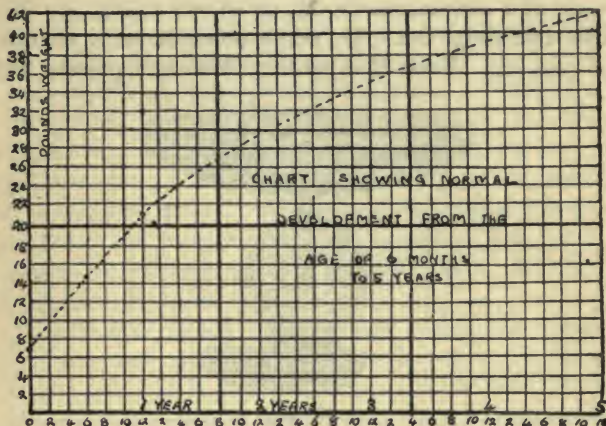 42
40
38
36
34
32
30
28
26
24
22
20
18
16
14
12
10
8
6
4
2
POUNDS WEIGHT
CHART SHOWING NORMAL
DEVELOPMENT FROM THE
AGE OF 6 MONTHS
TO 5 YEARS
1 YEAR 2 YEARS 3 4 5
0 2 4 6 8 10 12 2 4 6 8 10 12 2 4 6 8 10 12 2 4 6 8 10 12 2 4 6 8 10 12